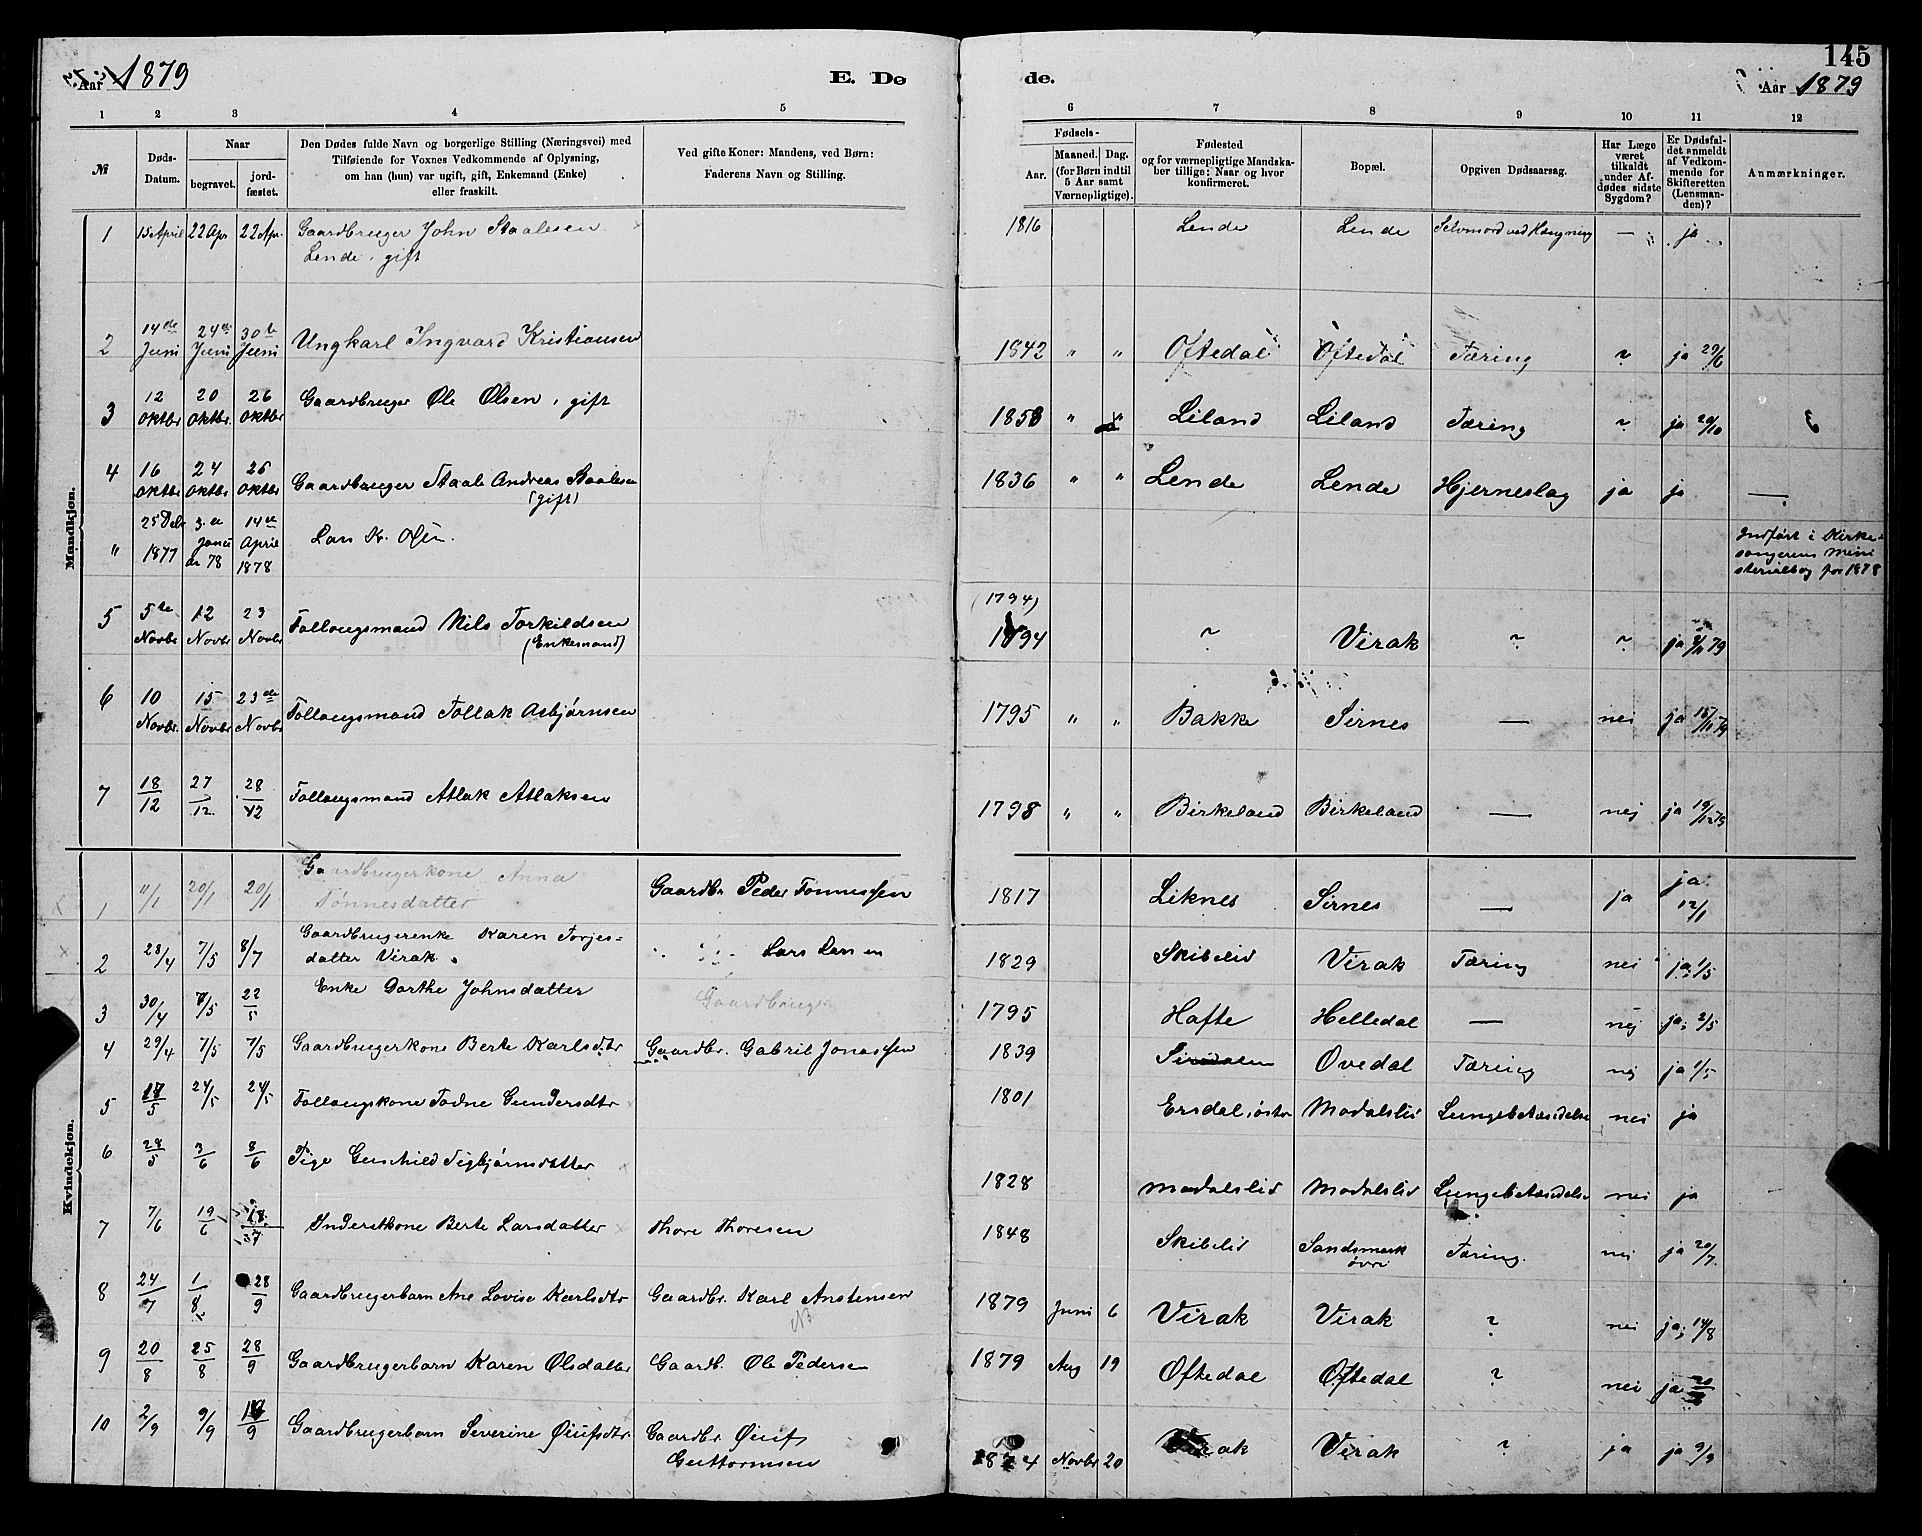 145
Aar 1879
E. Dø
de.
Aar 1879
1 2 3 4 5 6 7 8 9 10 11 12
№
Døds-Datum.
Naar
begravet.
jord-fæstet.
Den Dødes fulde Navn og borgerlige Stilling (Næringsvei) med
Tilføiende for Voxnes Vedkommende af Oplysning,
om han (hun) var ugift, gift, Enkemand (Enke)
eller fraskilt.
Ved gifte Koner: Mandens, ved Børn:
Faderens Navn og Stilling.
Fødsels-
Aar.
Maaned. Dag.
(for Børn indtil
5 Aar samt
Værnepligtige).
Fødested
og for værnepligtige Mandska-
ber tillige: Naar og hvor
konfirmeret.
Bopæl.
Opgiven Dødsaarsag.
Har Læge
været
tilkaldt
under Af-
dødes sidste
Sygdom?
Er Dødsfal-
det anmeldt
af Vedkom-
mende for
Skifteretten
(Lensman-
den)?
Anmærkninger.
Mandkjøn.
1 15 April 22 Apr 22 Apr. Gaardbruger John Staalesen 1816 Lende Lende Selvmord ved Hængning — ja
Lende, gift
2 14de Juni 24de Juni 30te Juni Ungkarl Ingvard Kristiansen 1842 " " Øftedal Øftedal Tæring ? ja 29/6
3 12 Oktbr 20 Oktbr. 26 Oktbr Gaardbruger Ole Olsen, gift 1858 " " Liland Liland Tæring ? ja 20/10
4 16 Oktbr 24 Oktbr 26 Oktbr Gaardbruger Staale Andreas Staalesen 1836 " " Lende Lende Hjerneslag ja ja —
(gift)
" 25 Debr 1877 3. Januar 78 14de April 1878 Lars K. Olsen. Indført i Kirke-
sangerens Mini
sterialbog for 1878
5 5te Novbr 12 Novbr 23 Novbr Follaugsmand Nils Torkildsen (1794) 1794 ? Virak ? ? ja 8/11 79
(Enkemand)
6 10 Novbr. 15 Novbr 23de Novbr Follaugsmand Tollak Asbjørnsen 1795 " " Bakke Sirnes — nei ja 15/11 79
7 18/12 27/12 28/12 Follaugsmand Atlak Atlaksen 1798 " " Birkeland Birkeland — nej ja 19/12 79
Kvindekjøn.
1 11/1 20/1 20/1 Gaardbrugerkone Anna Gaardbr Peder Tønnessen 1817 Liknes Sirnes — ja ja 12/1
Tønnesdatter
2 28/4 7/5 8/7 Gaardbrugerenke Karen Torjes= Lars Larsen 1829 Skibeliv Virak Tæring nei ja; 1/5
datter Virak.
3 30/4 7/5 22/5 Enke Dorthe Johnsdatter Gaardbruger 1795 Hafte Helledal — nej ja; 2/5
4 29/4 7/5 7/5 Gaardbrugerkone Berte Karlsdtr Gaardbr. Gabril Jonassen 1839 Sirdalen Ovedal Tæring nej ja 1/5
5 17/5 24/5 24/5 Follaugskone Tadne Gundersdtr 1801 Ersdal østr Modalsliv Lungebetændelse nei ja
6 28/5 3/6 8/6 Pige Gunhild Sigbjørnsdatter 1828 Modalsliv Modalsliv Lungebetændelse nei ja
7 7/6 19/6 Inderstkone Berte Larsdatter Thore Thoresen 1848 Skibeliv Sandsmark Tæring. nei ja 20/7.
øvre
8 24/7 1/8 28/9 Gaardbrugerbarn Ane Lovise Karlsdtr Gaardbr. Karl Anstensen 1879 Juni 6 Virak Virak ? nei ja; 14/8
NB
9 20/8 25/8 28/9 Gaardbrugerbarn Karen Olsdatter Gaardb. Ole Pedersen 1879 Aug 19 Øftedal Øftedal ? nei ja
10 2/9 9/9 Gaardbrugerbarn Severine Øiufsdtr. Gaardbr. Øiuf 1874 Novbr 20 Virak Virak ? ja ja 9/9
Guttormsen